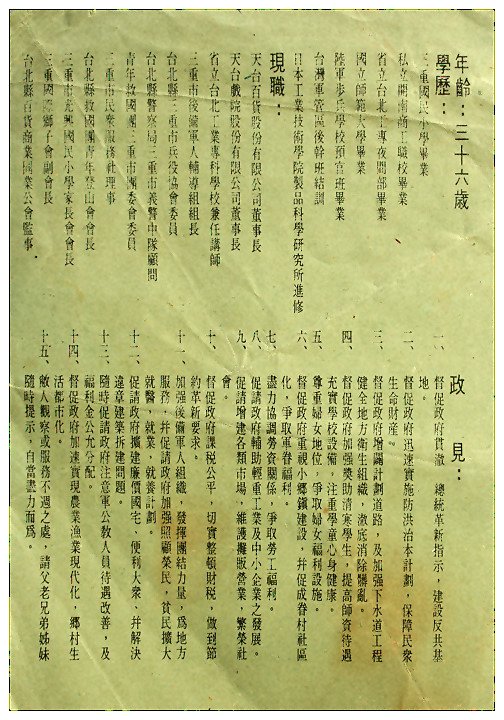 年齡：三十六歲
學歷：
三重國民小學畢業
私立開南商工職校畢業
省立台北工專夜間部畢業
國立師範大學畢業
陸軍步兵學校預官班畢業
台灣軍管區後幹班結訓
日本工業技術學院製品科學研究所進修
現職：
天台百貨股份有限公司董事長
天台戲院股份有限公司董事長
省立台北工業專科學校兼任講師
三重市後備軍人輔導組組長
台北縣三重市兵役協會委員
台北縣警察局三重市義警中隊顧問
青年救國團三重市團委會委員
三重市民眾服務社理事
台北縣救國團青年登山會會長
三重市永興國民小學家長會會長
三重國際獅子會副會長
台北縣百貨商業同業公會監事
政見：
一、督促政府貫澈　總統革新指示，建設反共基
地。
二、督促政府迅速實施防洪治本計劃，保障民眾
生命財產。
三、督促政府增闢計劃道路，及加强下水道工程
健全地方衛生組織，澈底消除髒亂。
四、督促政府加强獎助清寒學生，提高師資待遇
充實學校設備，注重學童心身健康。
五、尊重婦女地位，爭取婦女福利設施。
六、督促政府重視小鄉鎮建設，幷促成眷村社區
化，爭取軍眷福利。
七、盡力協調勞資關係，爭取勞工福利。
八、促請政府輔助輕重工業及中小企業之發展。
九、促請增建各類市場，維護攤販營業，繁榮社
會。
十、督促政府課稅公平，切實整頓財稅，做到節
約革新要求。
十一、加强後備軍人組織，發揮團結力量，爲地方
服務，幷促請政府加强照顧榮民，貧民擴大
就醫，就業，就養計劃。
十二、促請政府擴建廉價國宅，便利大衆，幷解決
違章建築拆建問題。
十三、隨時促請政府注意軍公教人員待遇改善，及
福利金公允分配。
十四、督促政府加速實現農業漁業現代化，鄉村生
活都市化。
十五、敝人觀察或服務不週之處，請父老兄弟姊妹
隨時提示，自當盡力而爲。